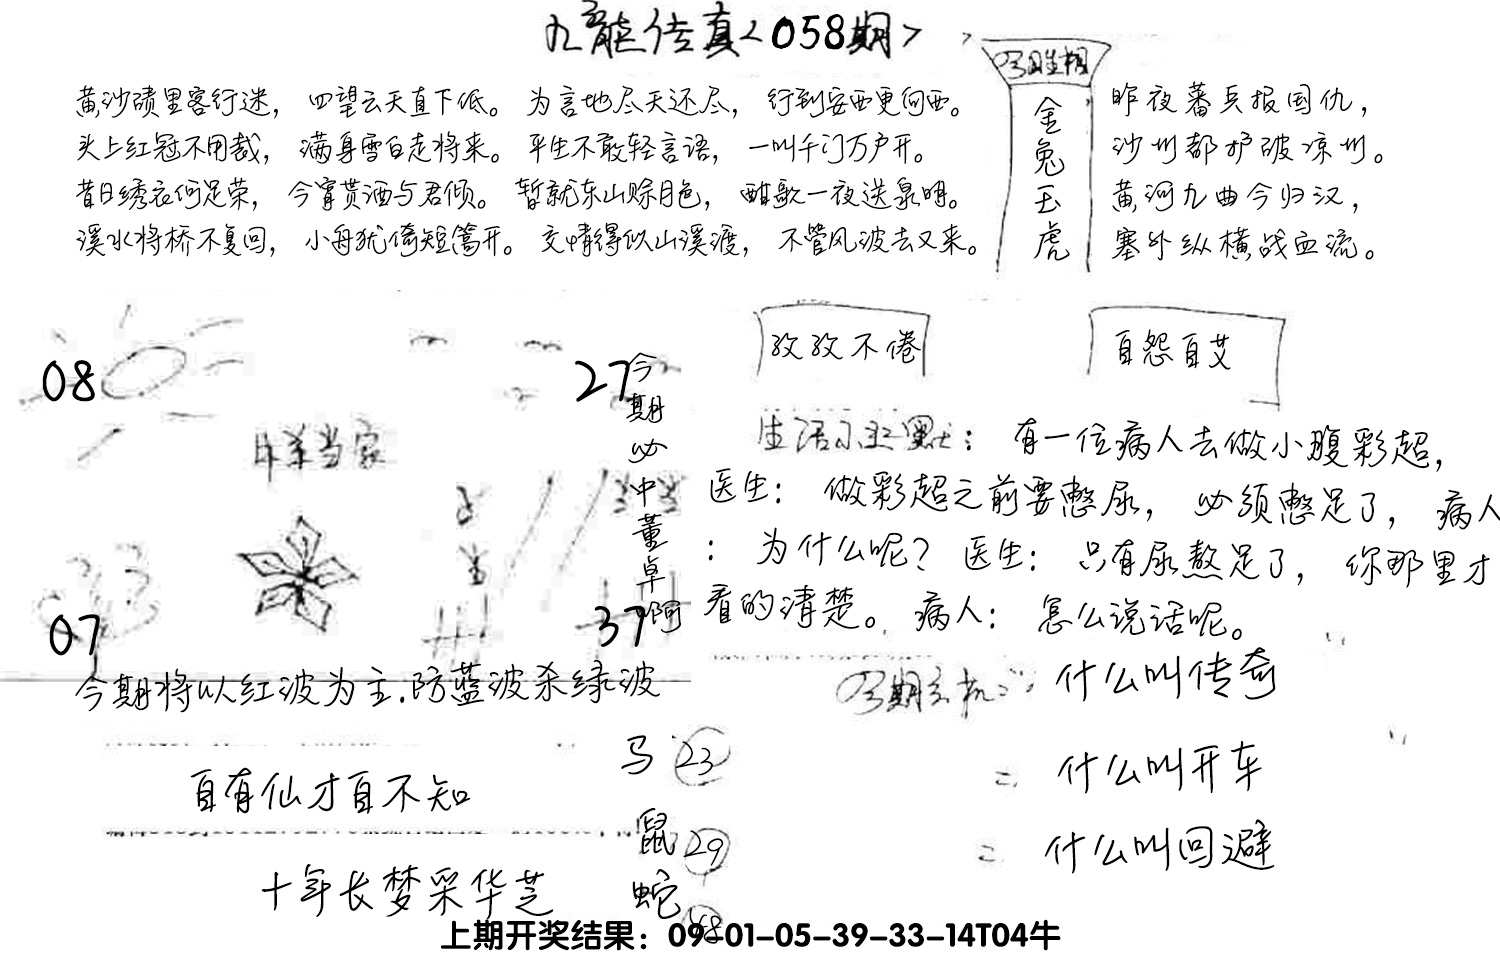 九龙传真<058期>
黄沙碛里客行迷，四望云天直下低。为言地尽天还尽，行到安西更向西。
头上红冠不用裁，满身雪白走将来。平生不敢轻言语，一叫千门万户开。
昔日绣衣何足荣，今宵贳酒与君倾。暂就东山赊月色，酣歌一夜送泉明。
溪水将桥不复回，小舟犹倚短篙开。交情得似山溪渡，不管风波去又来。
金兔玉虎
昨夜蕃兵报国仇，
沙州都护破凉州。
黄河九曲今归汉，
塞外纵横战血流。
孜孜不倦
自怨自艾
08
27
今期必中董卓啊
羊当家
07
37
今期将以红波为主.防蓝波杀绿波
生活幽默：有一位病人去做小腹彩超，
医生：做彩超之前要憋尿，必须憋足了，病人
：为什么呢？医生：只有尿熬足了，你那里才
看的清楚。病人：怎么说话呢。
今期玄机 什么叫传奇
= 什么叫开车
= 什么叫回避
自有仙才自不知
十年长梦采华芝
马 23
鼠 29
蛇
上期开奖结果：09-01-05-39-33-14T04牛